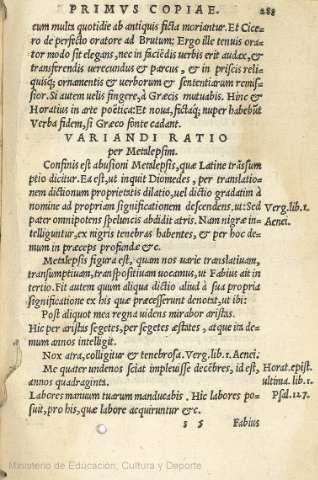 PRIMVS COPIAE. 288
cum multa quotidie ab antiquis ficta moriantur. Et Cice=
ro de perfecto oratore ad Brutum; Ergo ille tenuis ora=
tor modo sit elegans, nec in faciēdis uerbis erit audax, &
transferendis uerecundus & parcus, & in priscis reli=
quisq; ornamentis & uerborum & sententiarum remis=
sior. Si autem uelis fingere, à Græcis mutuabis. Hinc &
Horatius in arte poëtica: Et noua, fictáq; nuper habebūt
Verba fidem, si Græco fonte cadant.
VARIANDI RATIO
per Metalepsim.
Confinis est abusioni Metalepsis, quæ Latine trāsum
ptio dicitur. Ea est, ut inquit Diomedes, per translatio=
nem dictionum proprietatis dilatio, uel dictio gradatim à
nomine ad propriam significationem descendens. ut: Sed
pater omnipotens speluncis abdidit atris. Nam nigræ in=
telliguntur, ex nigris tenebras habentes, & per hoc de=
mum in præceps profundæ &c.
Verg. lib. 1.
Aenei.
Metalepsis figura est, quam nos uarie translatiuam,
transumptiuam, transpositiuam uocamus, ut Fabius ait in
tertio. Fit autem quum aliqua dictio aliud à sua propria
significatione ex his quæ præcesserunt denotat, ut ibi:
Post aliquot mea regna uidens mirabor aristas.
Hic per aristas segetes, per segetes æstates, atque ita de=
mum annos intelligit.
Nox atra, colligitur & tenebrosa. Verg. lib. 1. Aenei.
Me quater undenos sciat impleuisse decēbres, id est,
annos quadraginta.
Horat. epist
ultima. lib. 1.
Labores manuum tuarum manducabis. Hic labores po=
suit, pro his, quæ labore acquiruntur &c.
Psal. 127.
s 5 Fabius
Ministerio de Educación, Cultura y Deporte